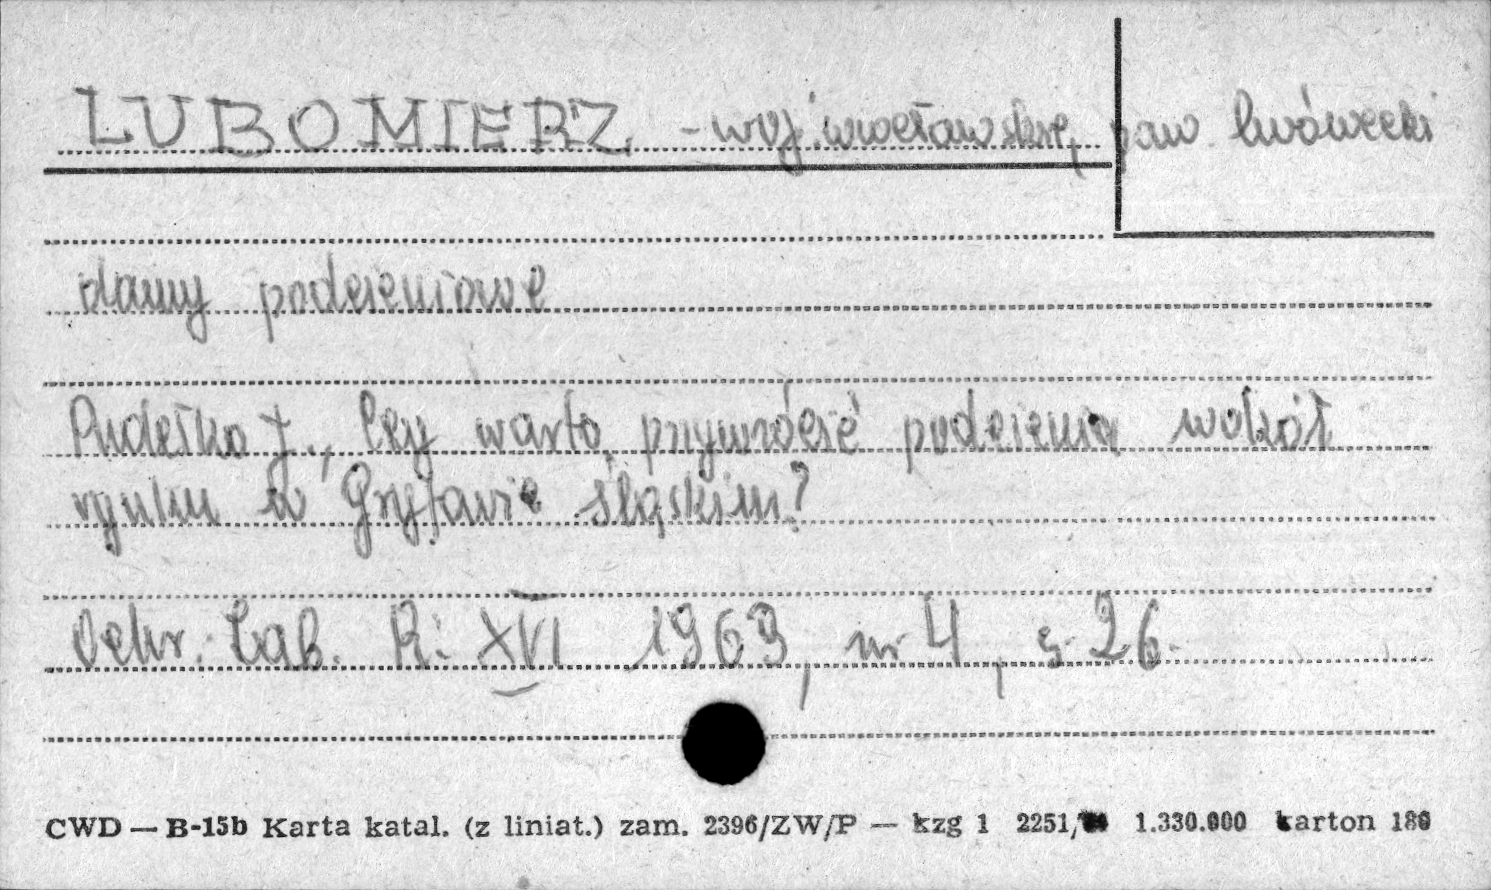 LUBOMIERZ - woj. wrocławskie, pow. lwówecki
domy podcieniowe
Rudełko J., Czy warto przywrócić podcienia wokół
rynku w Gryfowie Śląskim?
Ochr. Zab. R: XVI 1963, nr 4, s. 26.
CWD — B-15b Karta katal. (z liniat.) zam. 2396/ZW/P — kzg 1 2251/ 1.330.000 karton 180